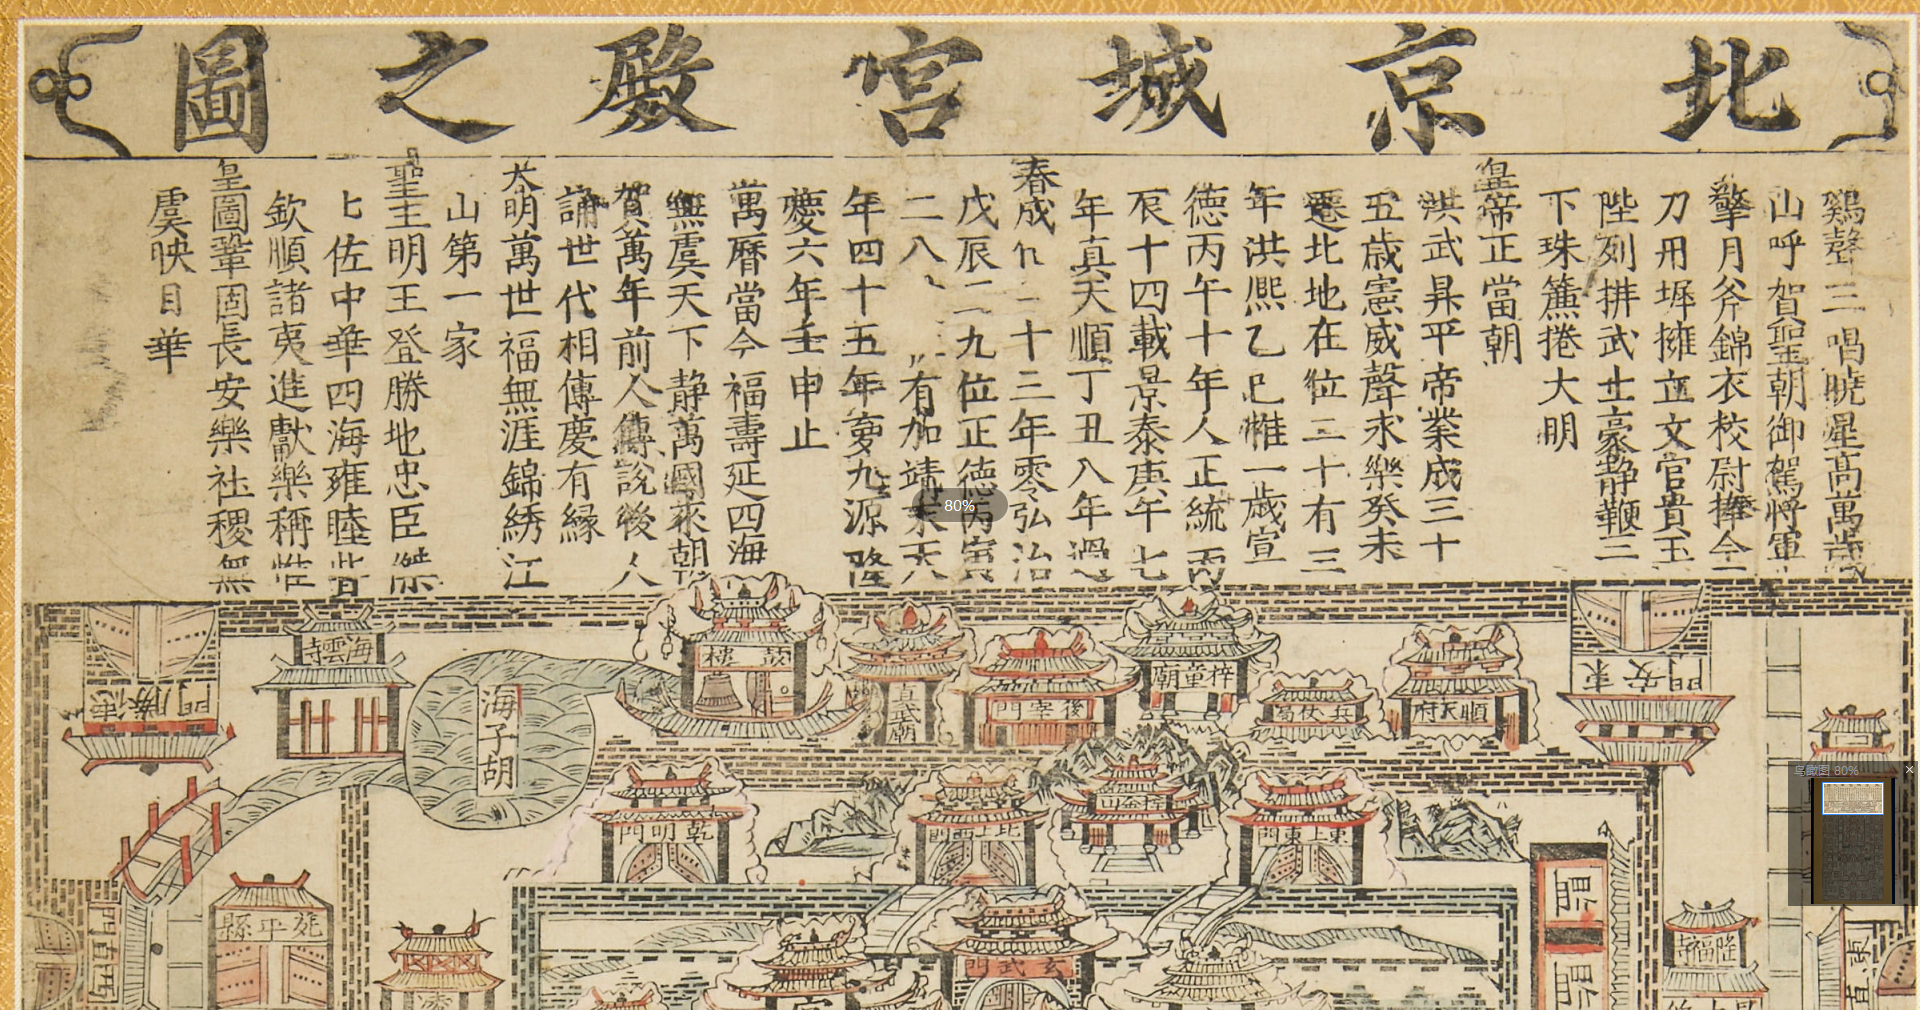 北京城宮殿之圖
鷄聲三唱曉星高萬歲
山呼賀聖朝御駕將軍
擎月斧錦衣校尉捧金
刀丹墀擁立文官貴玉
陛列排武士豪静鞭三
下珠簾捲大明
皇帝正當朝
洪武昇平帝業成三十
五歲憲威聲永樂癸未
遷北地在位二十有三
年洪熈乙巳惟一歲宣
德丙午十年人正統丙
辰十四載景泰庚午七
年真天順丁丑八年過
春成化二十三年零弘治
戊辰二九位正德丙寅
二八
有加靖
年四十五年夢九源隆
慶六年壬申止
萬曆當今福壽延四海
無虞天下静萬國來朝
賀萬年前人傳說後人
誦世代相傳慶有緣
大明萬世福無涯錦綉江
山第一家
聖主明王登勝地忠臣傑
七佐中華四海雍睦皆
欽順諸夷進獻樂稱
皇圖鞏固長安樂社稷無
虞映日華
德勝門
海雲寺
海子胡
鼓樓
真武廟
後宰門
梓童廟
兵仗局
順天府
安東門
乾明門
北上西門
東上東門
宛平縣
玄武門
隆福寺
鳥瞰图 80%
80%